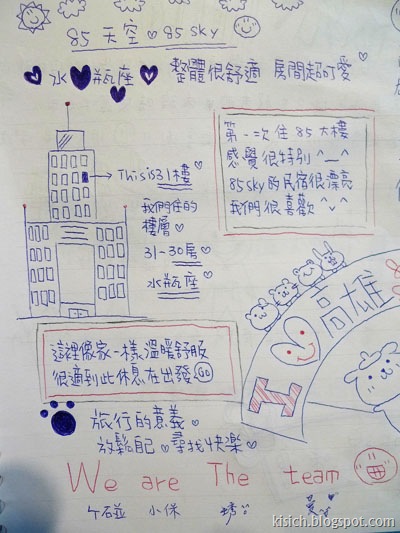 85 天空 ♡ 85 sky
水瓶座
整體很舒適 房間超可愛
This is 31樓
我們住的
樓層
31-30房
水瓶座
第一次住85大樓
感覺很特別 ^_^
85sky的民宿很漂亮
我們很喜歡 ^ᴗ^
I ♡ 高雄
這裡像家一樣溫暖舒服
很適到此休息在出發 GO
旅行的意義
放鬆自己。尋找快樂
We are The team
小保
kisich.blogspot.com